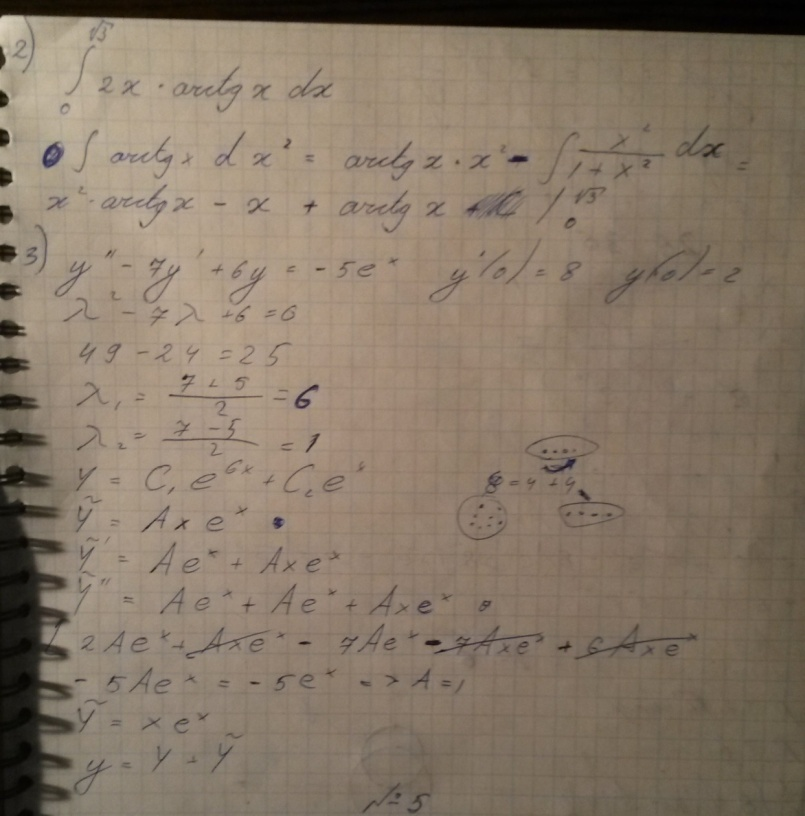 2)
√3
∫ 2x · arctg x dx
0
∫ arctg x d x² = arctg x · x² - ∫ x²/(1 + x²) dx =
x² · arctg x - x + arctg x |₀^√3
3) y'' - 7y' + 6y = -5eˣ y'(0) = 8 y(0) = 2
λ² - 7λ + 6 = 0
49 - 24 = 25
λ₁ = (7 + 5)/2 = 6
λ₂ = (7 - 5)/2 = 1
Y = C₁e⁶ˣ + C₂eˣ
8 = 4 + 4
Ỹ = Axeˣ
Ỹ' = Aeˣ + Axeˣ
Ỹ'' = Aeˣ + Aeˣ + Axeˣ
2Aeˣ + Axeˣ - 7Aeˣ - 7Axeˣ + 6Axeˣ
- 5Aeˣ = -5eˣ => A = 1
Ỹ = xeˣ
y = Y + Ỹ
№ 5